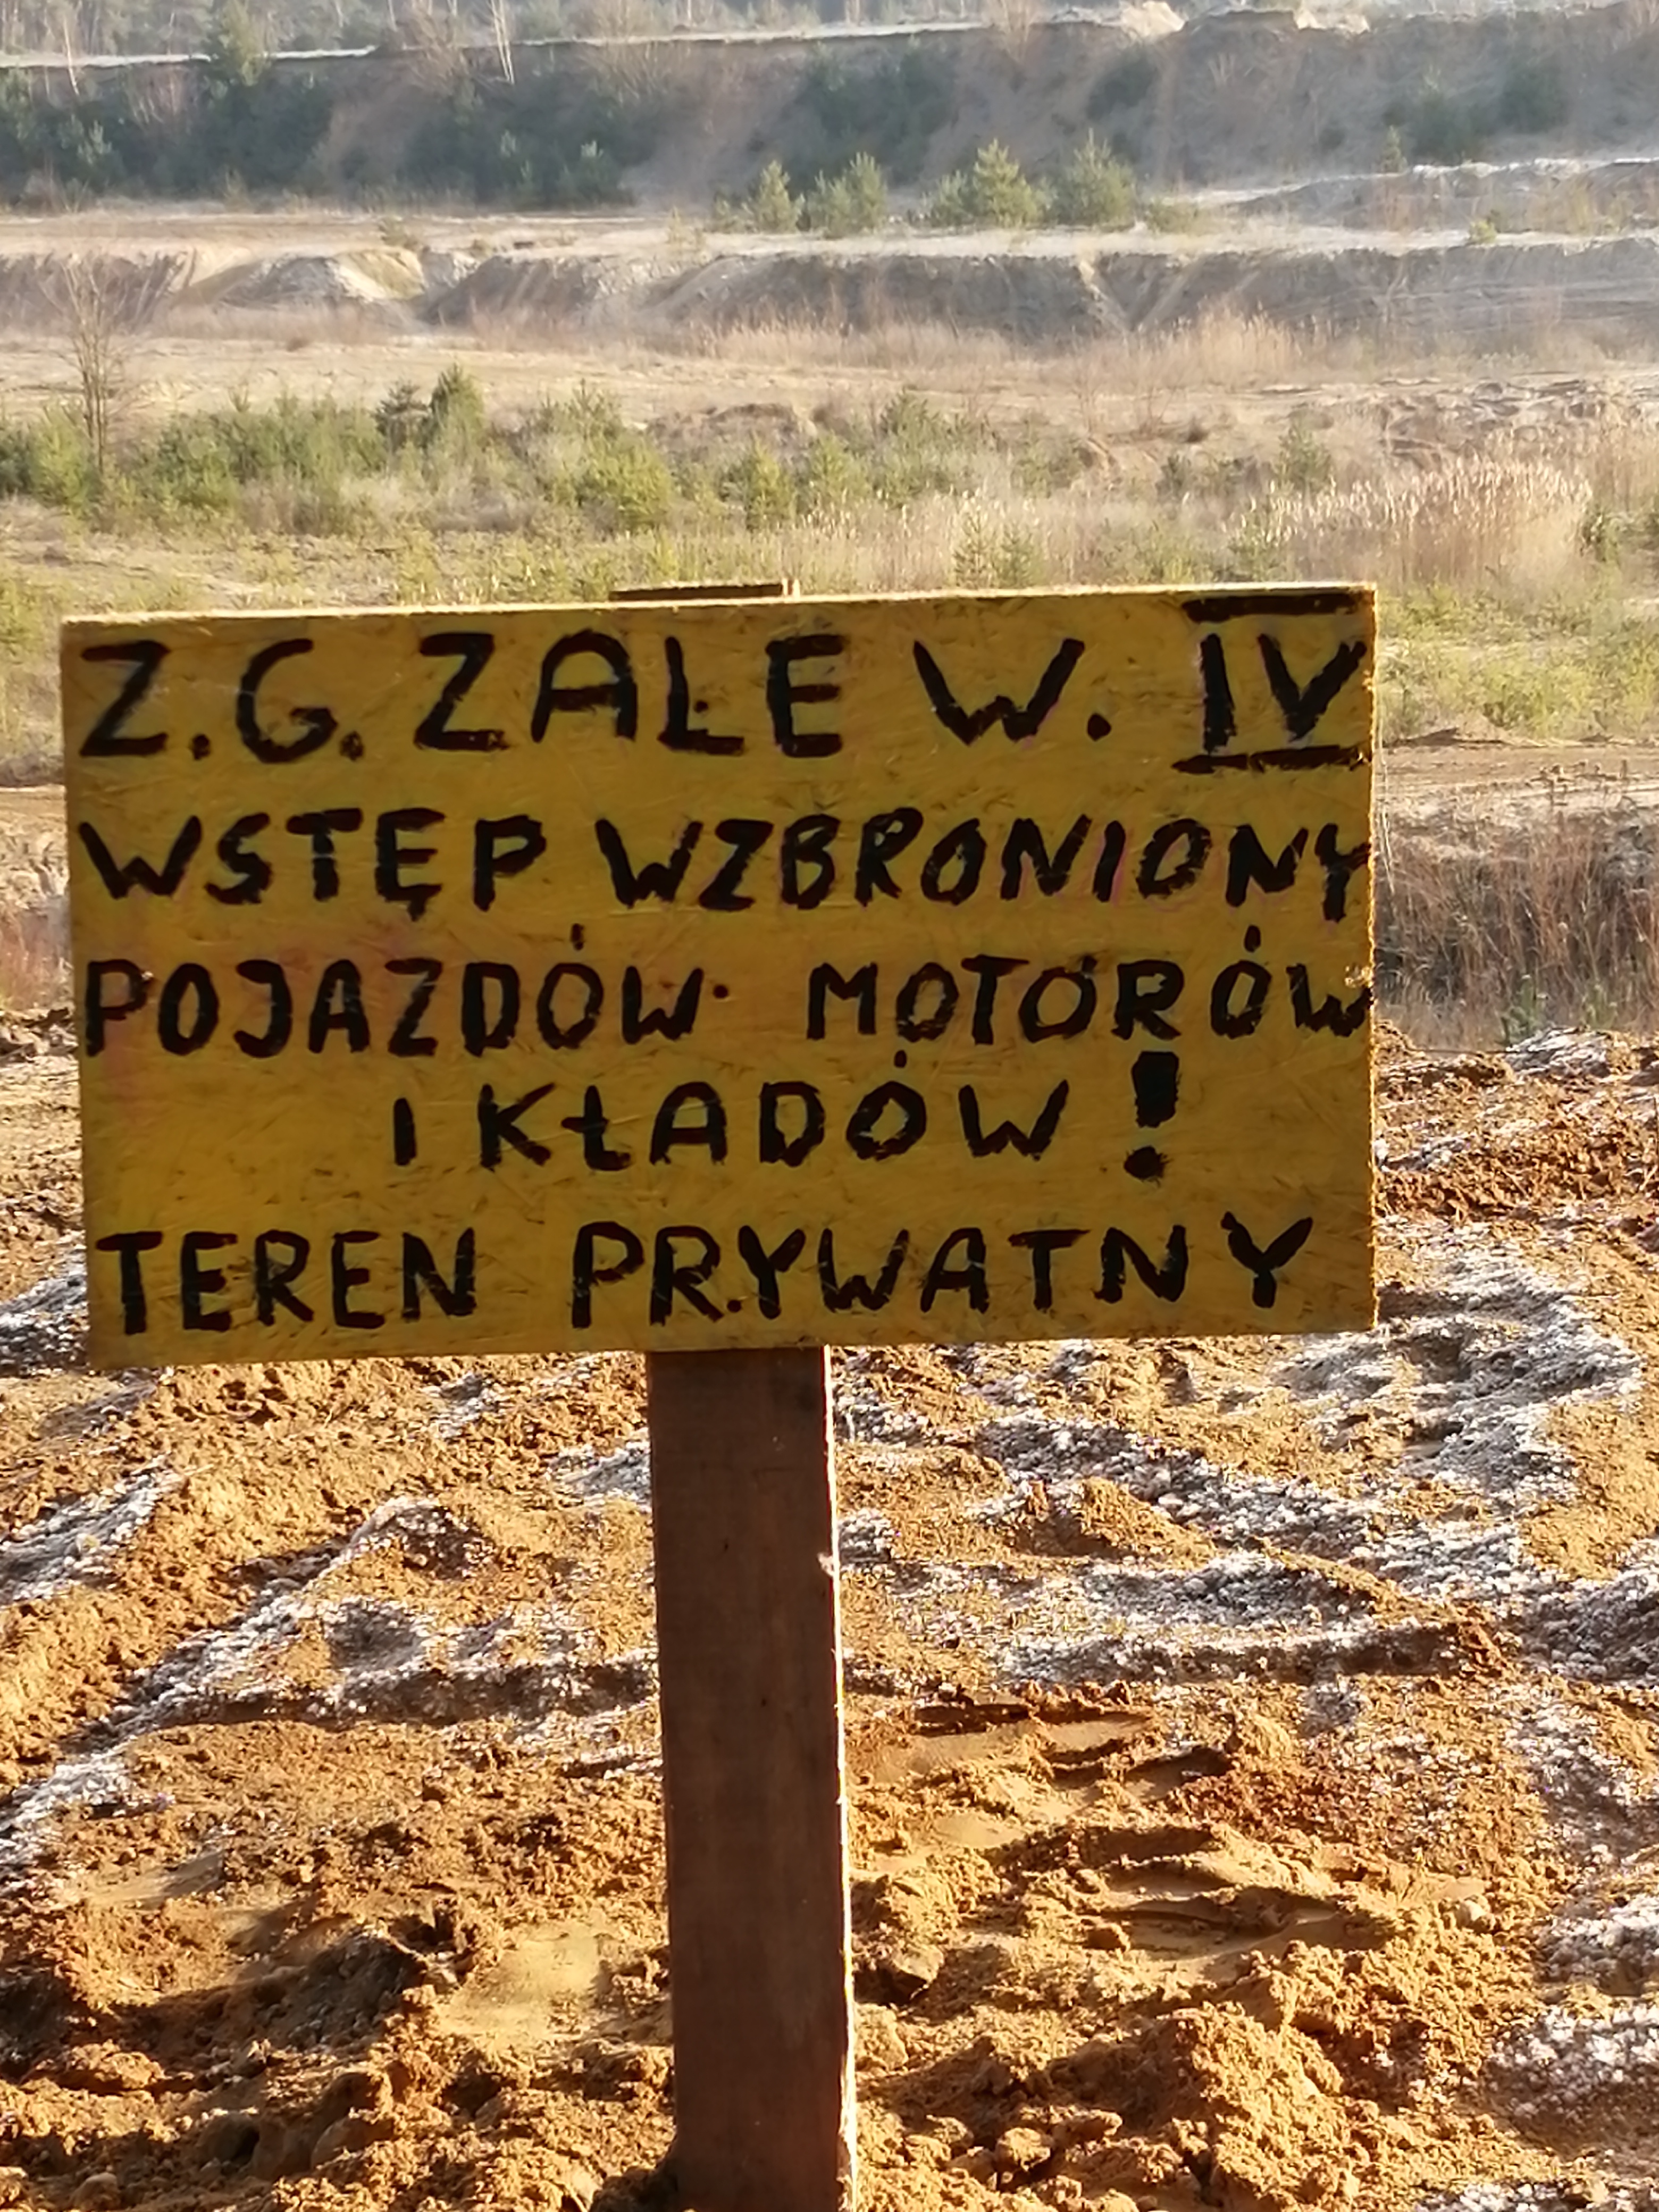 Z.G. ZAŁE W. IV
WSTĘP WZBRONIONY
POJAZDÓW MOTORÓW
I KŁADÓW!
TEREN PRYWATNY